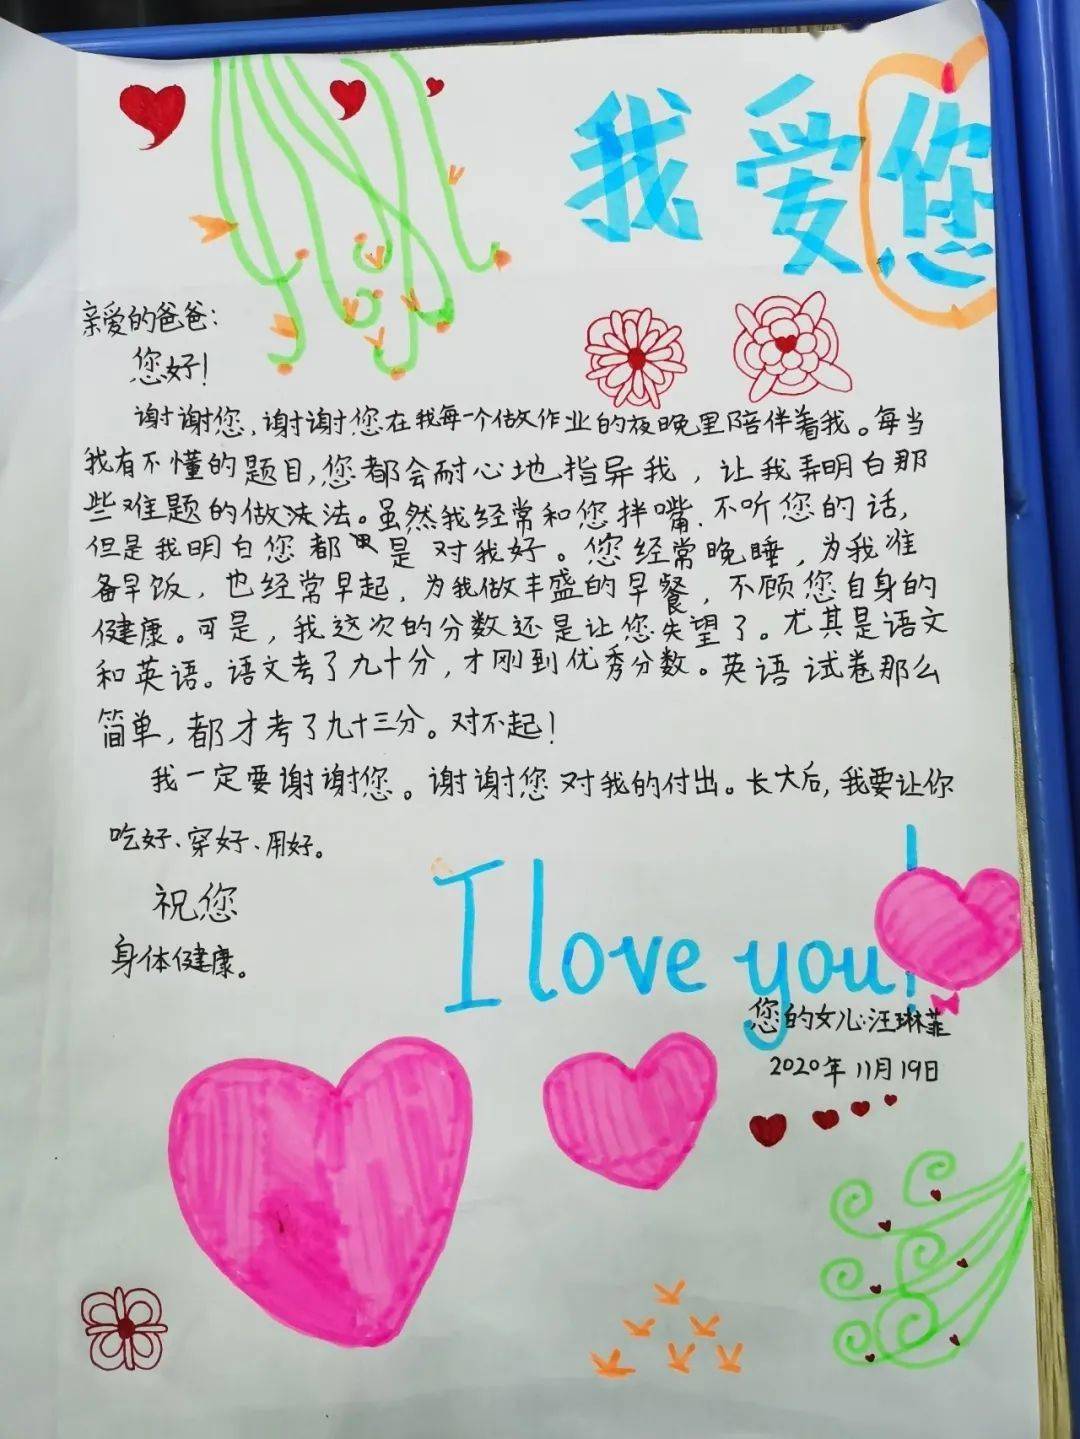 我爱您
亲爱的爸爸:
您好!
谢谢您,谢谢您在我每一个做作业的夜晚里陪伴着我。每当
我有不懂的题目,您都会耐心地指导我,让我弄明白那
些难题的做法法。虽然我经常和您拌嘴、不听您的话,
但是我明白您都是对我好。您经常晚睡,为我准
备早饭,也经常早起,为我做丰盛的早餐,不顾您自身的
健康。可是,我这次的分数还是让您失望了。尤其是语文
和英语。语文考了九十分,才刚到优秀分数。英语试卷那么
简单,都才考了九十三分。对不起!
我一定要谢谢您。谢谢您对我的付出。长大后,我要让你
吃好、穿好、用好。
祝您
身体健康。
I love you!
您的女儿:汪琳菲
2020年11月19日